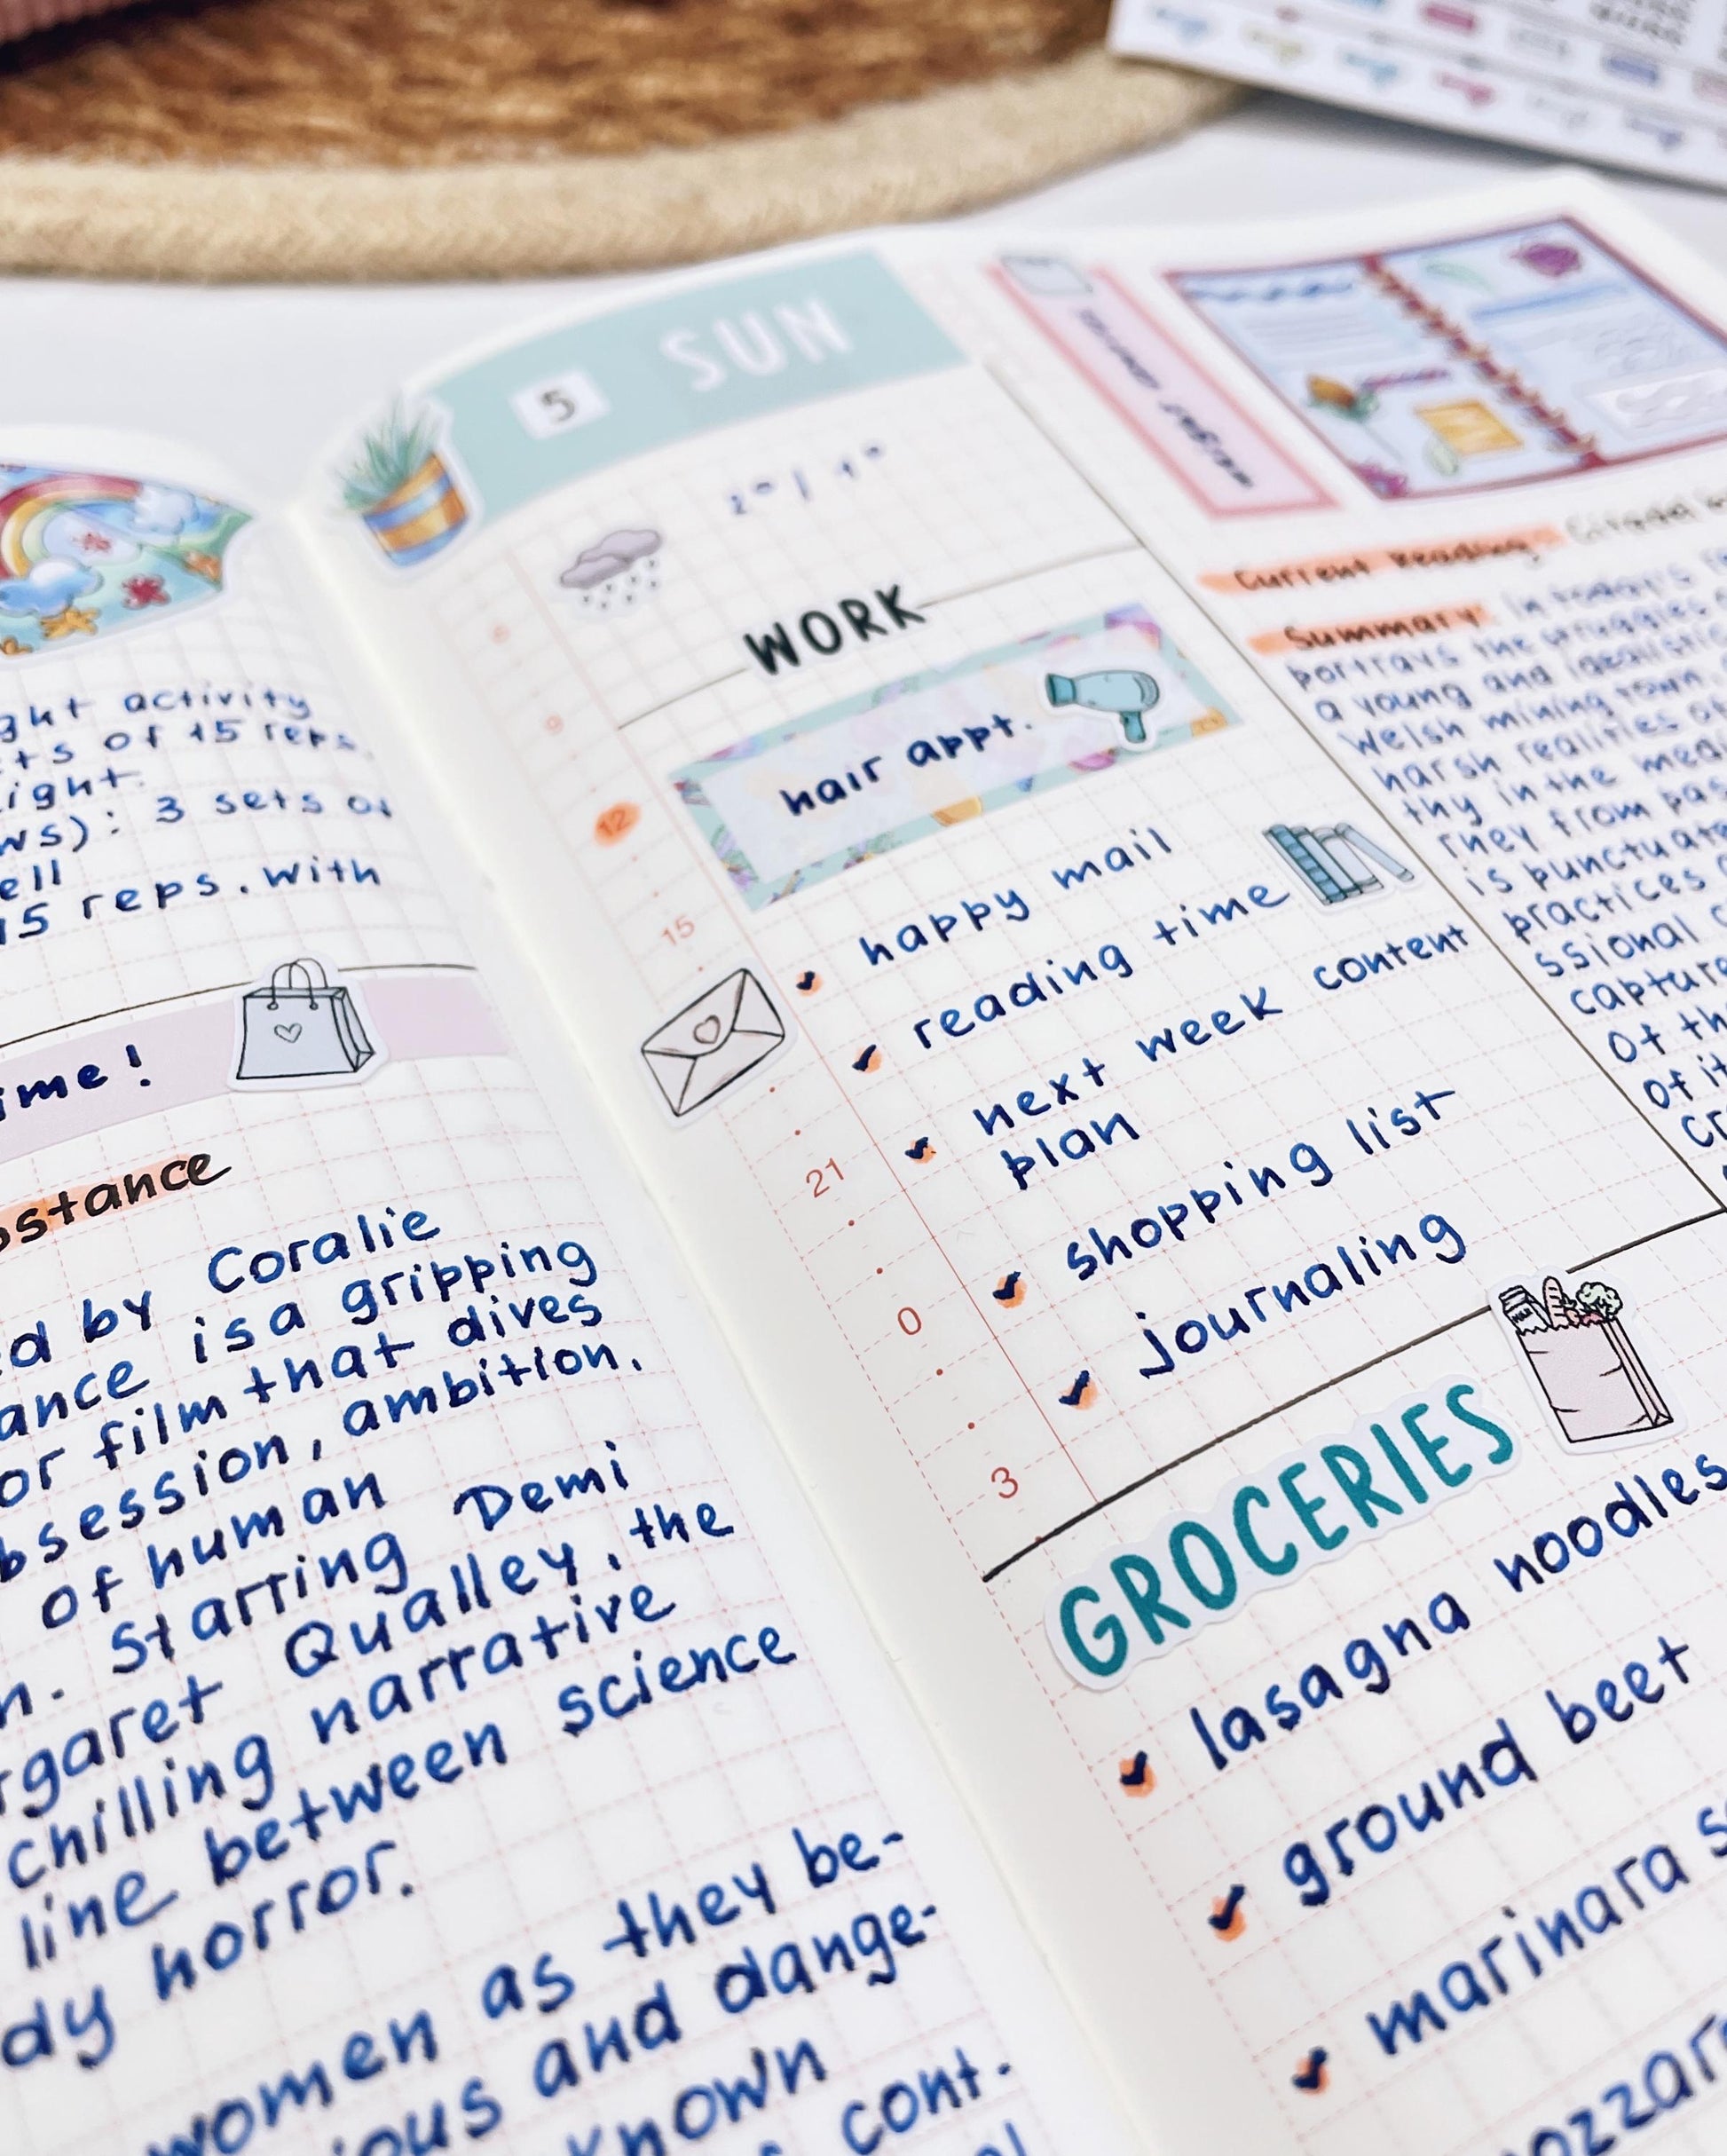 ght activity
ts of 15 reps
ight.
ws): 3 sets of
ell
15 reps. With
ime!
ostance
ed by Coralie
ance is a gripping
or film that dives
bsession, ambition,
of human
n. Starring Demi
rgaret Qualley, the
chilling narrative
line between science
dy horror.
women as they be-
ious and dange-
known
cont.
5 SUN
WORK
hair appt.
happy mail
reading time
next week content
plan
shopping list
journaling
9
12
15
21
0
3
GROCERIES
lasagna noodles
ground beet
marinara s
ozzar
Current Reading: Citadel
Summary: In today's
portrays the struggles
a young and idealistic
Welsh mining town.
harsh realities of
thy in the medi
rney from pas
is punctuate
practices
ssional c
capture
of th
of it
cr